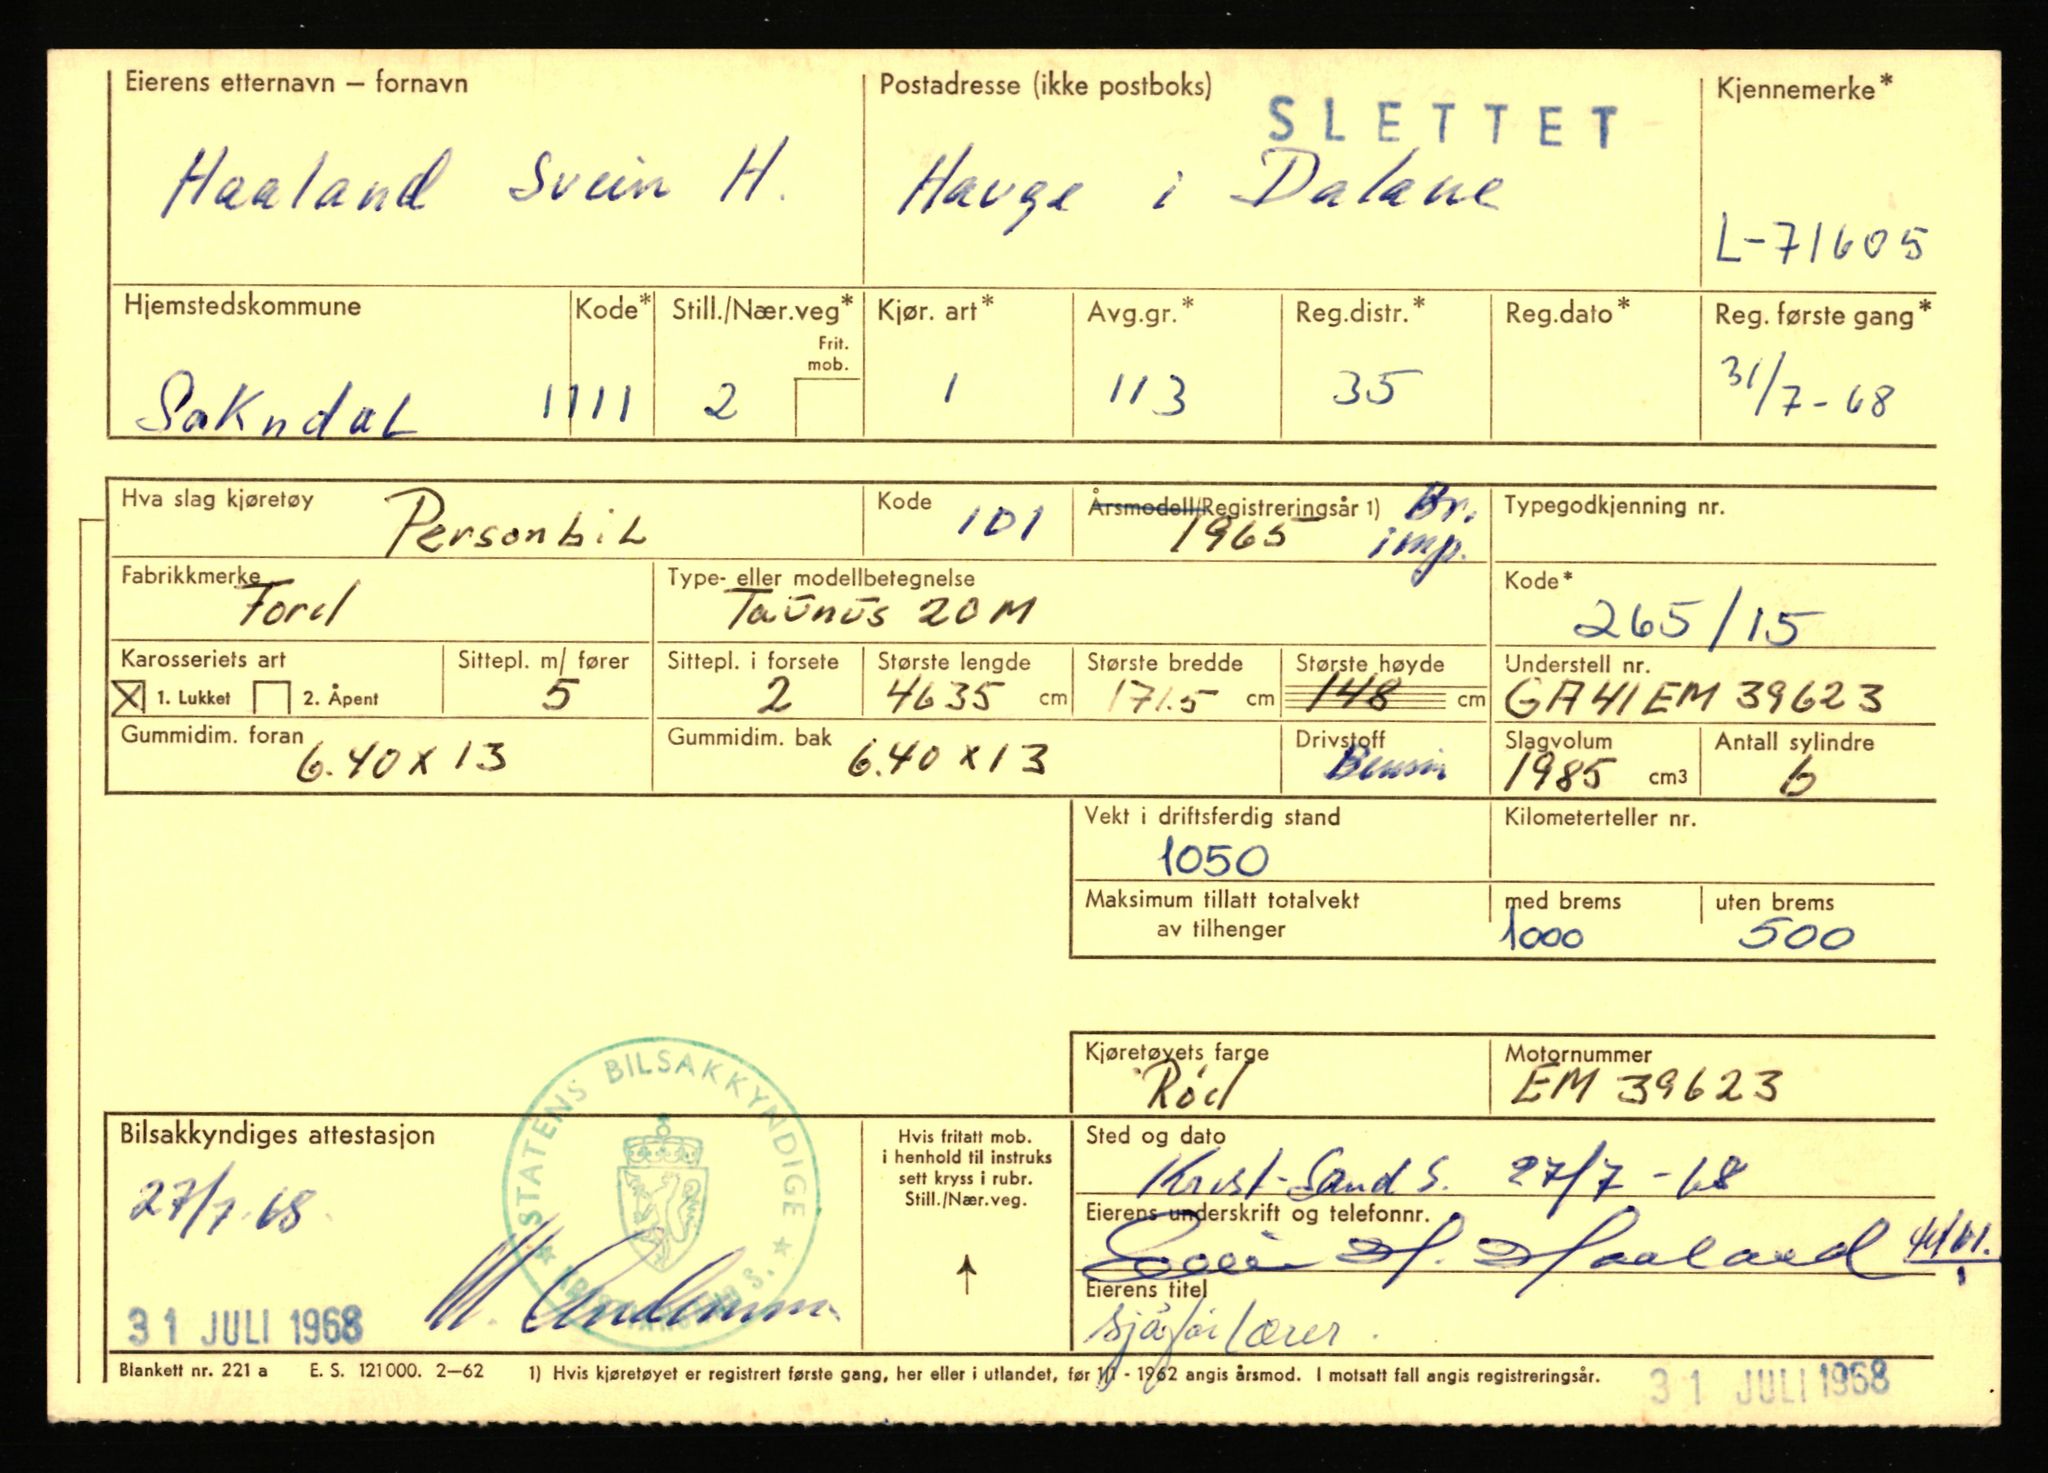 Eierens etternavn – fornavn Postadresse (ikke postboks) Kjennemerke*
SLETTET
Haaland Svein H. Hauge i Dalane
L-71605
Hjemstedskommune Kode* Still./Nær.veg* Kjør. art* Avg.gr.* Reg.distr.* Reg.dato* Reg. første gang*
Frit. mob.
Sokndal 1111 2 1 113 35 31/7-68
Hva slag kjøretøy Kode Årsmodell/Registreringsår 1) Typegodkjenning nr.
Personbil 101 1965 Br. imp.
Fabrikkmerke Type- eller modellbetegnelse Kode*
Ford Taunus 20M 265/15
Karosseriets art Sittepl. m/ fører Sittepl. i forsete Største lengde Største bredde Største høyde Understell nr.
X 1. Lukket 2. Åpent 5 2 4635 cm 171.5 cm 148 cm GA41EM 39623
Gummidim. foran Gummidim. bak Drivstoff Slagvolum Antall sylindre
6.40 x 13 6.40 x 13 Bensin 1985 cm3 6
Vekt i driftsferdig stand Kilometerteller nr.
1050
Maksimum tillatt totalvekt med brems uten brems
av tilhenger 1000 500
Kjøretøyets farge Motornummer
Rød EM 39623
STATENS BILSAKKYNDIGE
Bilsakkyndiges attestasjon
27/7.68
31 JULI 1968
Hvis fritatt mob.
i henhold til instruks
sett kryss i rubr.
Still./Nær.veg.
Sted og dato
Krist-Sand S. 27/7-68
Eierens underskrift og telefonnr.
Svein H. Haaland
Eierens titel
sjåførlærer.
Blankett nr. 221 a E. S. 121000. 2–62 1) Hvis kjøretøyet er registrert første gang, her eller i utlandet, før 1/1 - 1962 angis årsmod. I motsatt fall angis registreringsår.
31 JULI 1968